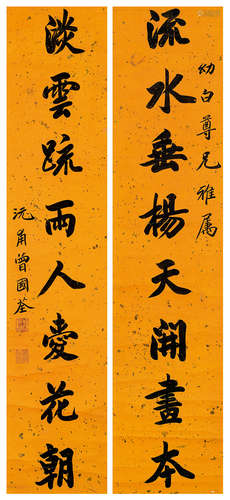 幼白尊兄雅属
流水垂楊天開畫本
淡雲疏雨人愛花朝
沅甫曾國荃